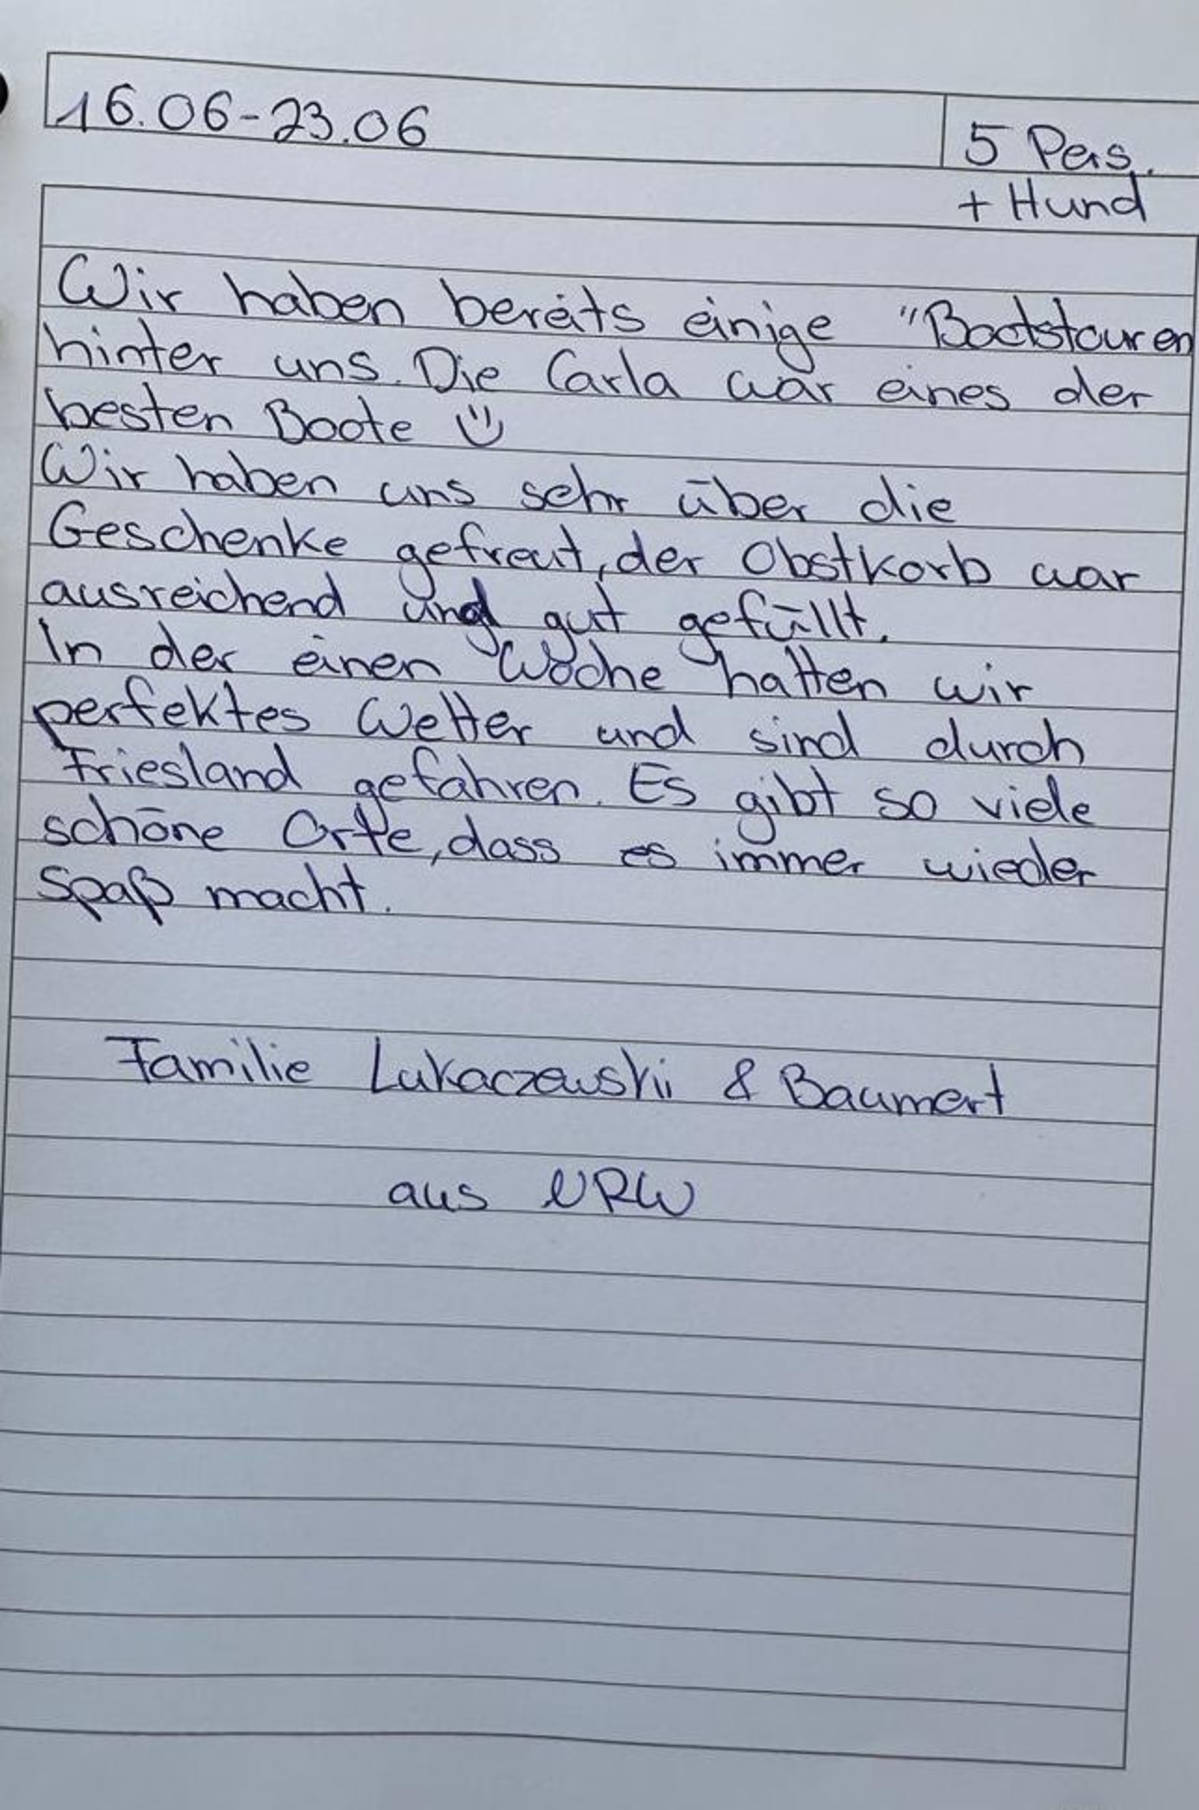 16.06-23.06
5 Pers.
+ Hund
Wir haben bereits einige "Bootstouren
hinter uns. Die Carla war eines der
besten Boote
Wir haben uns sehr über die
Geschenke gefreut, der Obstkorb war
ausreichend und gut gefüllt.
In der einen Woche hatten wir
perfektes Wetter und sind durch
Friesland gefahren. Es gibt so viele
schöne Orte, dass es immer wieder
Spaß macht.
Familie Lukaczewski & Baumert
aus NRW